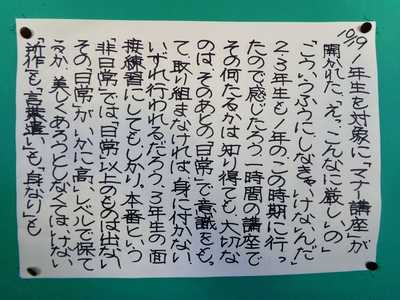 10/19 1年生を対象に「マナー講座」が
開かれた。「えっ、こんなに厳しいの」
「こういうふうにしなきゃ、いけないんだ」
2・3年生も1年のこの時期に行っ
たので感じたろう。一時間の講座で
その何たるかは知り得ても、大切な
のは、そのあとの「日常」で意識をもっ
て、取り組まなければ、身に付かない。
いずれ行われるだろう、3年生の面
接練習にしてもしかり。本番という
「非日常」では、「日常」以上のものは出ない。
その「日常」が、いかに高いレベルで保て
るか、美しくあろうとしなくては、いけない。
「所作」も、「言葉遣い」も、「身なり」も